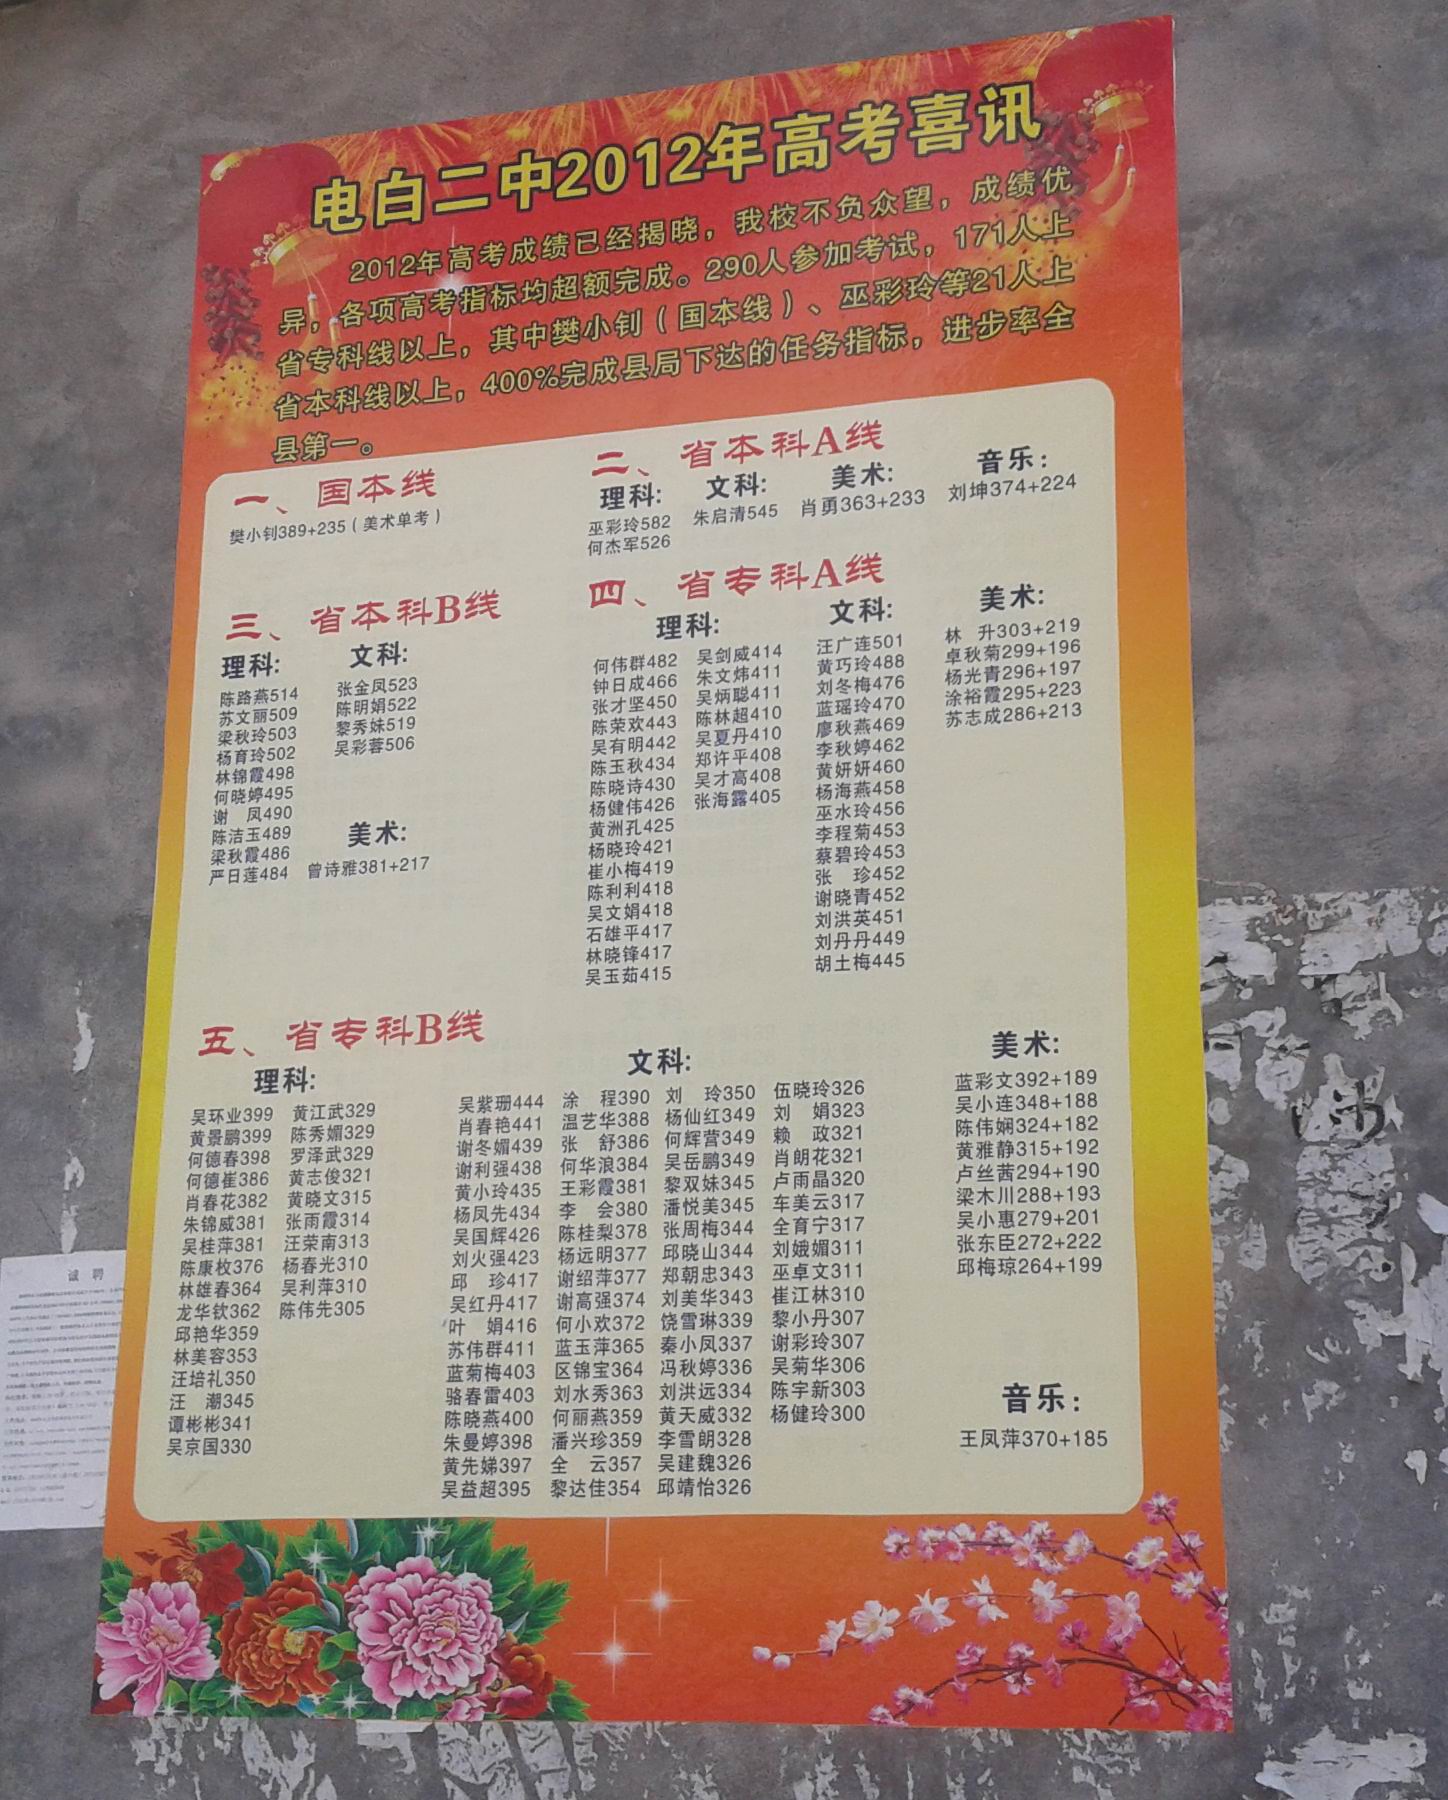 电白二中2012年高考喜讯
2012年高考成绩已经揭晓，我校不负众望，成绩优
异，各项高考指标均超额完成。290人参加考试，171人上
省专科线以上，其中樊小钊（国本线）、巫彩玲等21人上
省本科线以上，400%完成县局下达的任务指标，进步率全
县第一。
一、国本线
樊小钊389+235（美术单考）
二、省本科A线
理科：
巫彩玲582
何杰军526
文科：
朱启清545
美术：
肖勇363+233
音乐：
刘坤374+224
三、省本科B线
理科：
陈路燕514
苏文丽509
梁秋玲503
杨育玲502
林锦霞498
何晓婷495
谢　凤490
陈洁玉489
梁秋霞486
严日莲484
文科：
张金凤523
陈明娟522
黎秀妹519
吴彩蓉506
美术：
曾诗雅381+217
四、省专科A线
理科：
何伟群482
钟日成466
张才坚450
陈荣欢443
吴有明442
陈玉秋434
陈晓诗430
杨健伟426
黄洲孔425
杨晓玲421
崔小梅419
陈利利418
吴文娟418
石雄平417
林晓锋417
吴玉茹415
吴剑威414
朱文炜411
吴炳聪411
陈林超410
吴夏丹410
郑许平408
吴才高408
张海露405
文科：
汪广连501
黄巧玲488
刘冬梅476
蓝瑶玲470
廖秋燕469
李秋婷462
黄妍妍460
杨海燕458
巫水玲456
李程菊453
蔡碧玲453
张　珍452
谢晓青452
刘洪英451
刘丹丹449
胡土梅445
美术：
林　升303+219
卓秋菊299+196
杨光青296+197
涂裕霞295+223
苏志成286+213
五、省专科B线
理科：
吴环业399
黄景鹏399
何德春398
何德崔386
肖春花382
朱锦威381
吴桂萍381
陈康枚376
林雄春364
龙华钦362
邱艳华359
林美容353
汪培礼350
汪　潮345
谭彬彬341
吴京国330
黄江武329
陈秀媚329
罗泽武329
黄志俊321
黄晓文315
张雨霞314
汪荣南313
杨春光310
吴利萍310
陈伟先305
文科：
吴紫珊444
肖春艳441
谢冬媚439
谢利强438
黄小玲435
杨凤先434
吴国辉426
刘火强423
邱　珍417
吴红丹417
叶　娟416
苏伟群411
蓝菊梅403
骆春雷403
陈晓燕400
朱曼婷398
黄先娣397
吴益超395
涂　程390
温艺华388
张　舒386
何华浪384
王彩霞381
李　会380
陈桂梨378
杨远明377
谢绍萍377
谢高强374
何小欢372
蓝玉萍365
区锦宝364
刘水秀363
何丽燕359
潘兴珍359
全　云357
黎达佳354
刘　玲350
杨仙红349
何辉营349
吴岳鹏349
黎双妹345
潘悦美345
张周梅344
邱晓山344
郑朝忠343
刘美华343
饶雪琳339
秦小凤337
冯秋婷336
刘洪远334
黄天威332
李雪朗328
吴建魏326
邱靖怡326
伍晓玲326
刘　娟323
赖　政321
肖朗花321
卢雨晶320
车美云317
全育宁317
刘娥媚311
巫卓文311
崔江林310
黎小丹307
谢彩玲307
吴菊华306
陈宇新303
杨健玲300
美术：
蓝彩文392+189
吴小连348+188
陈伟娴324+182
黄雅静315+192
卢丝茜294+190
梁木川288+193
吴小惠279+201
张东臣272+222
邱梅琼264+199
音乐：
王凤萍370+185
诚 聘